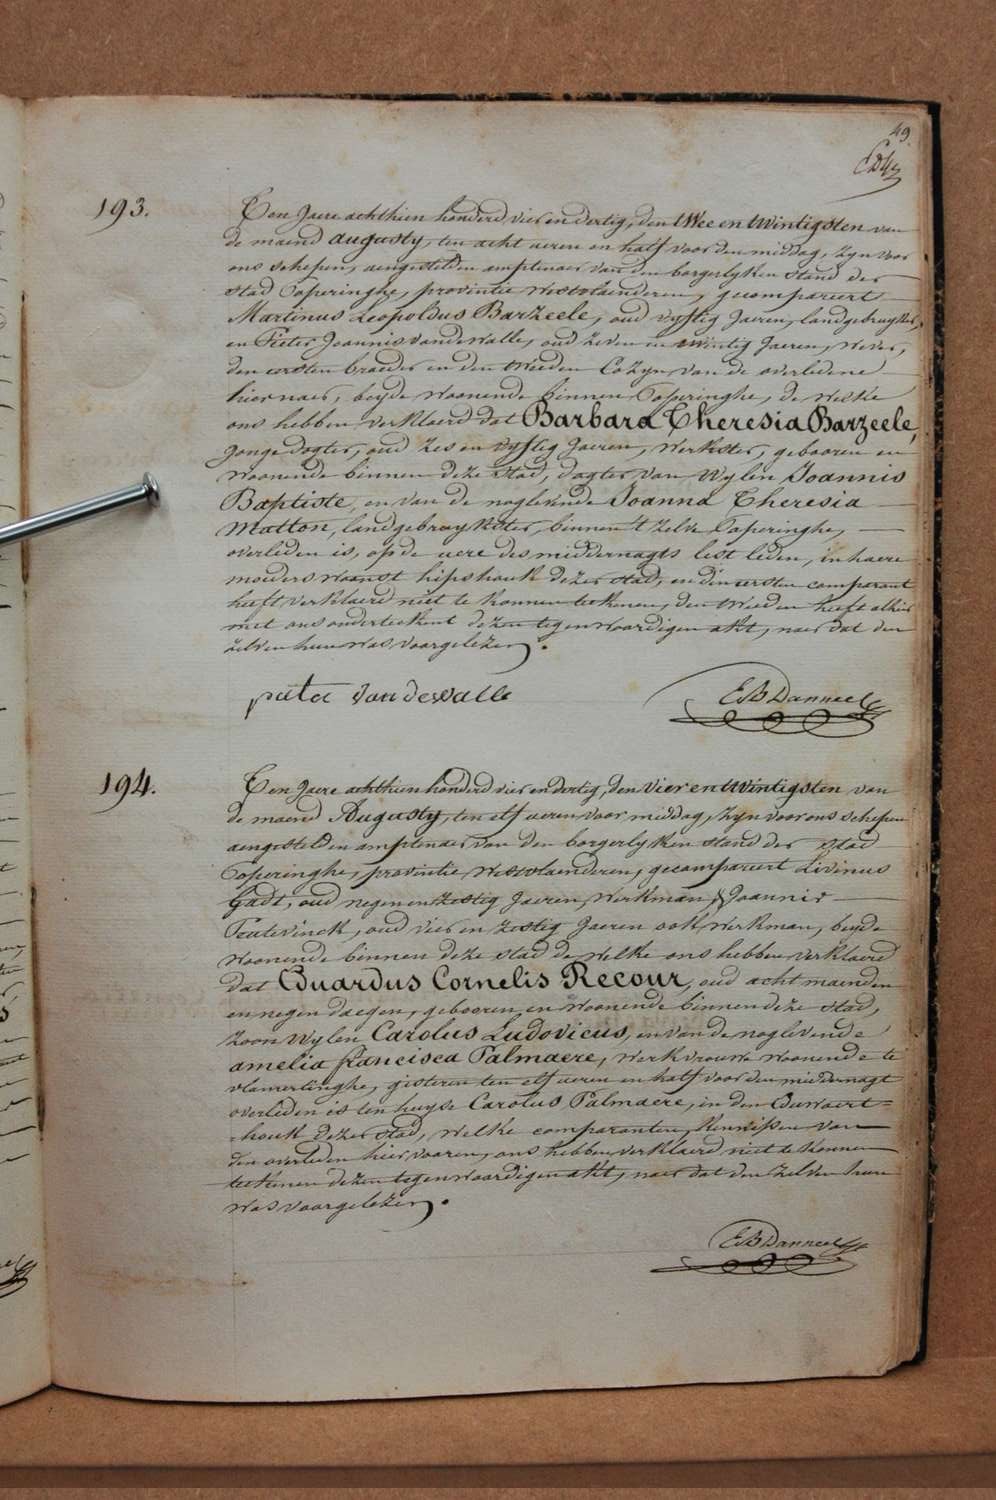 49.
193.
Ten Jaere achthien honderd vier en dertig, den twee en twintigsten van
de maend augusty, ten acht ueren en half voor den middag, zyn voor
ons schepen, aengestelden amptenaer van den borgerlyken stand der
stad Poperinghe, provintie westvlaenderen, gecompareert
Martinus Leopoldus Barzeele, oud vyftig Jaeren, landgebruyker,
en Pieter Joannis vandewalle, oud zeven en twintig Jaeren, wever,
den eersten broeder en den tweeden Cozyn van de overledene
hiernaer, beyde woonende binnen Poperinghe, de welke
ons hebben verklaerd dat Barbara Theresia Barzeele,
Jonge dogter, oud zes en vyftig Jaeren, werkster, gebooren en
woonende binnen deze stad, dogter van wylen Joannis
Baptiste, en van de noglevende Joanna Theresia
Matton, landgebruykster, binnen 't zelve Poperinghe,
overleden is, op de uere des middernagts lest leden, in haere
moeders woonst hipshouk dezer stad, en den eersten comparant
heeft verklaerd niet te konnen teekenen, den tweeden heeft alhier
met ons onderteekent dezen tegenwoordigen akt, naer dat den
zelven hun was voorgelezen.
pieter vandewalle
E B Danneel
194.
Ten Jaere achthien honderd vier en dertig, den vier en twintigsten van
de maend Augusty, ten elf ueren voor middag, zyn voor ons schepen
aengestelden amptenaer van den borgerlyken stand der stad
Poperinghe, provintie westvlaenderen, gecompareert Livinus
Gadt, oud negen en zestig Jaeren, werkman, & Joannis
Teutevinck, oud vier en zestig Jaeren ook werkman, beyde
woonende binnen deze stad de welke ons hebben verklaerd
dat Eduardus Cornelis Recour, oud acht maenden
en negen daegen, gebooren en woonende binnen deze stad,
zoon wylen Carolus Ludovicus, en van de noglevende
amelia francisca Palmaere, werkvrouw woonende te
vlamertinghe, gisteren ten elf ueren en half voor den middernagt
overleden is ten huyse Carolus Palmaere, in den Ouwaert=
=houk dezer stad, welke comparanten, kennissen van
den overleden hiervooren, ons hebben verklaerd niet te konnen
teekenen dezen tegenwoordigen akt, naer dat den zelven hun
was voorgelezen.
E B Danneel